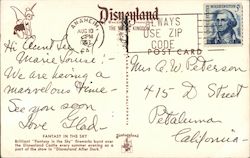 Disneyland
THE MAGIC KINGDOM
ANAHEIM
AUG 10
PM
CA
ALWAYS
USE ZIP
CODE
WASHINGTON
POST CARD
Hi Aunt
Marie Louise:-
We are having a
marvelous time -
See you soon
Love Glad-
Mrs A. W. Peterson
415 - D Street
Petaluma
California
FANTASY IN THE SKY
Brilliant "Fantasy in the Sky" fireworks burst over
the Disneyland Castle every summer evening as a
part of the show in "Disneyland After Dark."